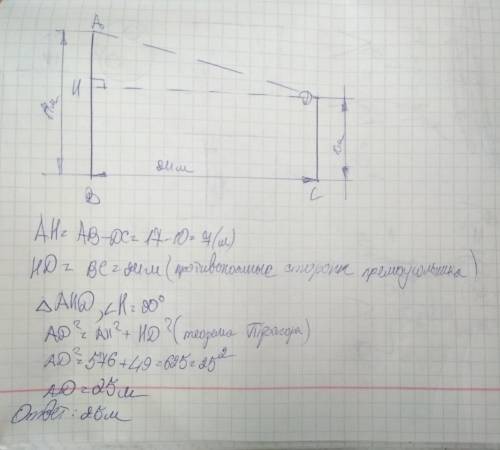 A
H
D
24м
B
C
AH = AB - DC = 17 - 10 = 7(м)
HD = BC = 24м (противоположные стороны прямоугольника)
△AHD, ∠H = 90°
AD² = AH² + HD² (теорема Пифагора)
AD² = 576 + 49 = 625 = 25²
AD = 25м
Ответ: 25м